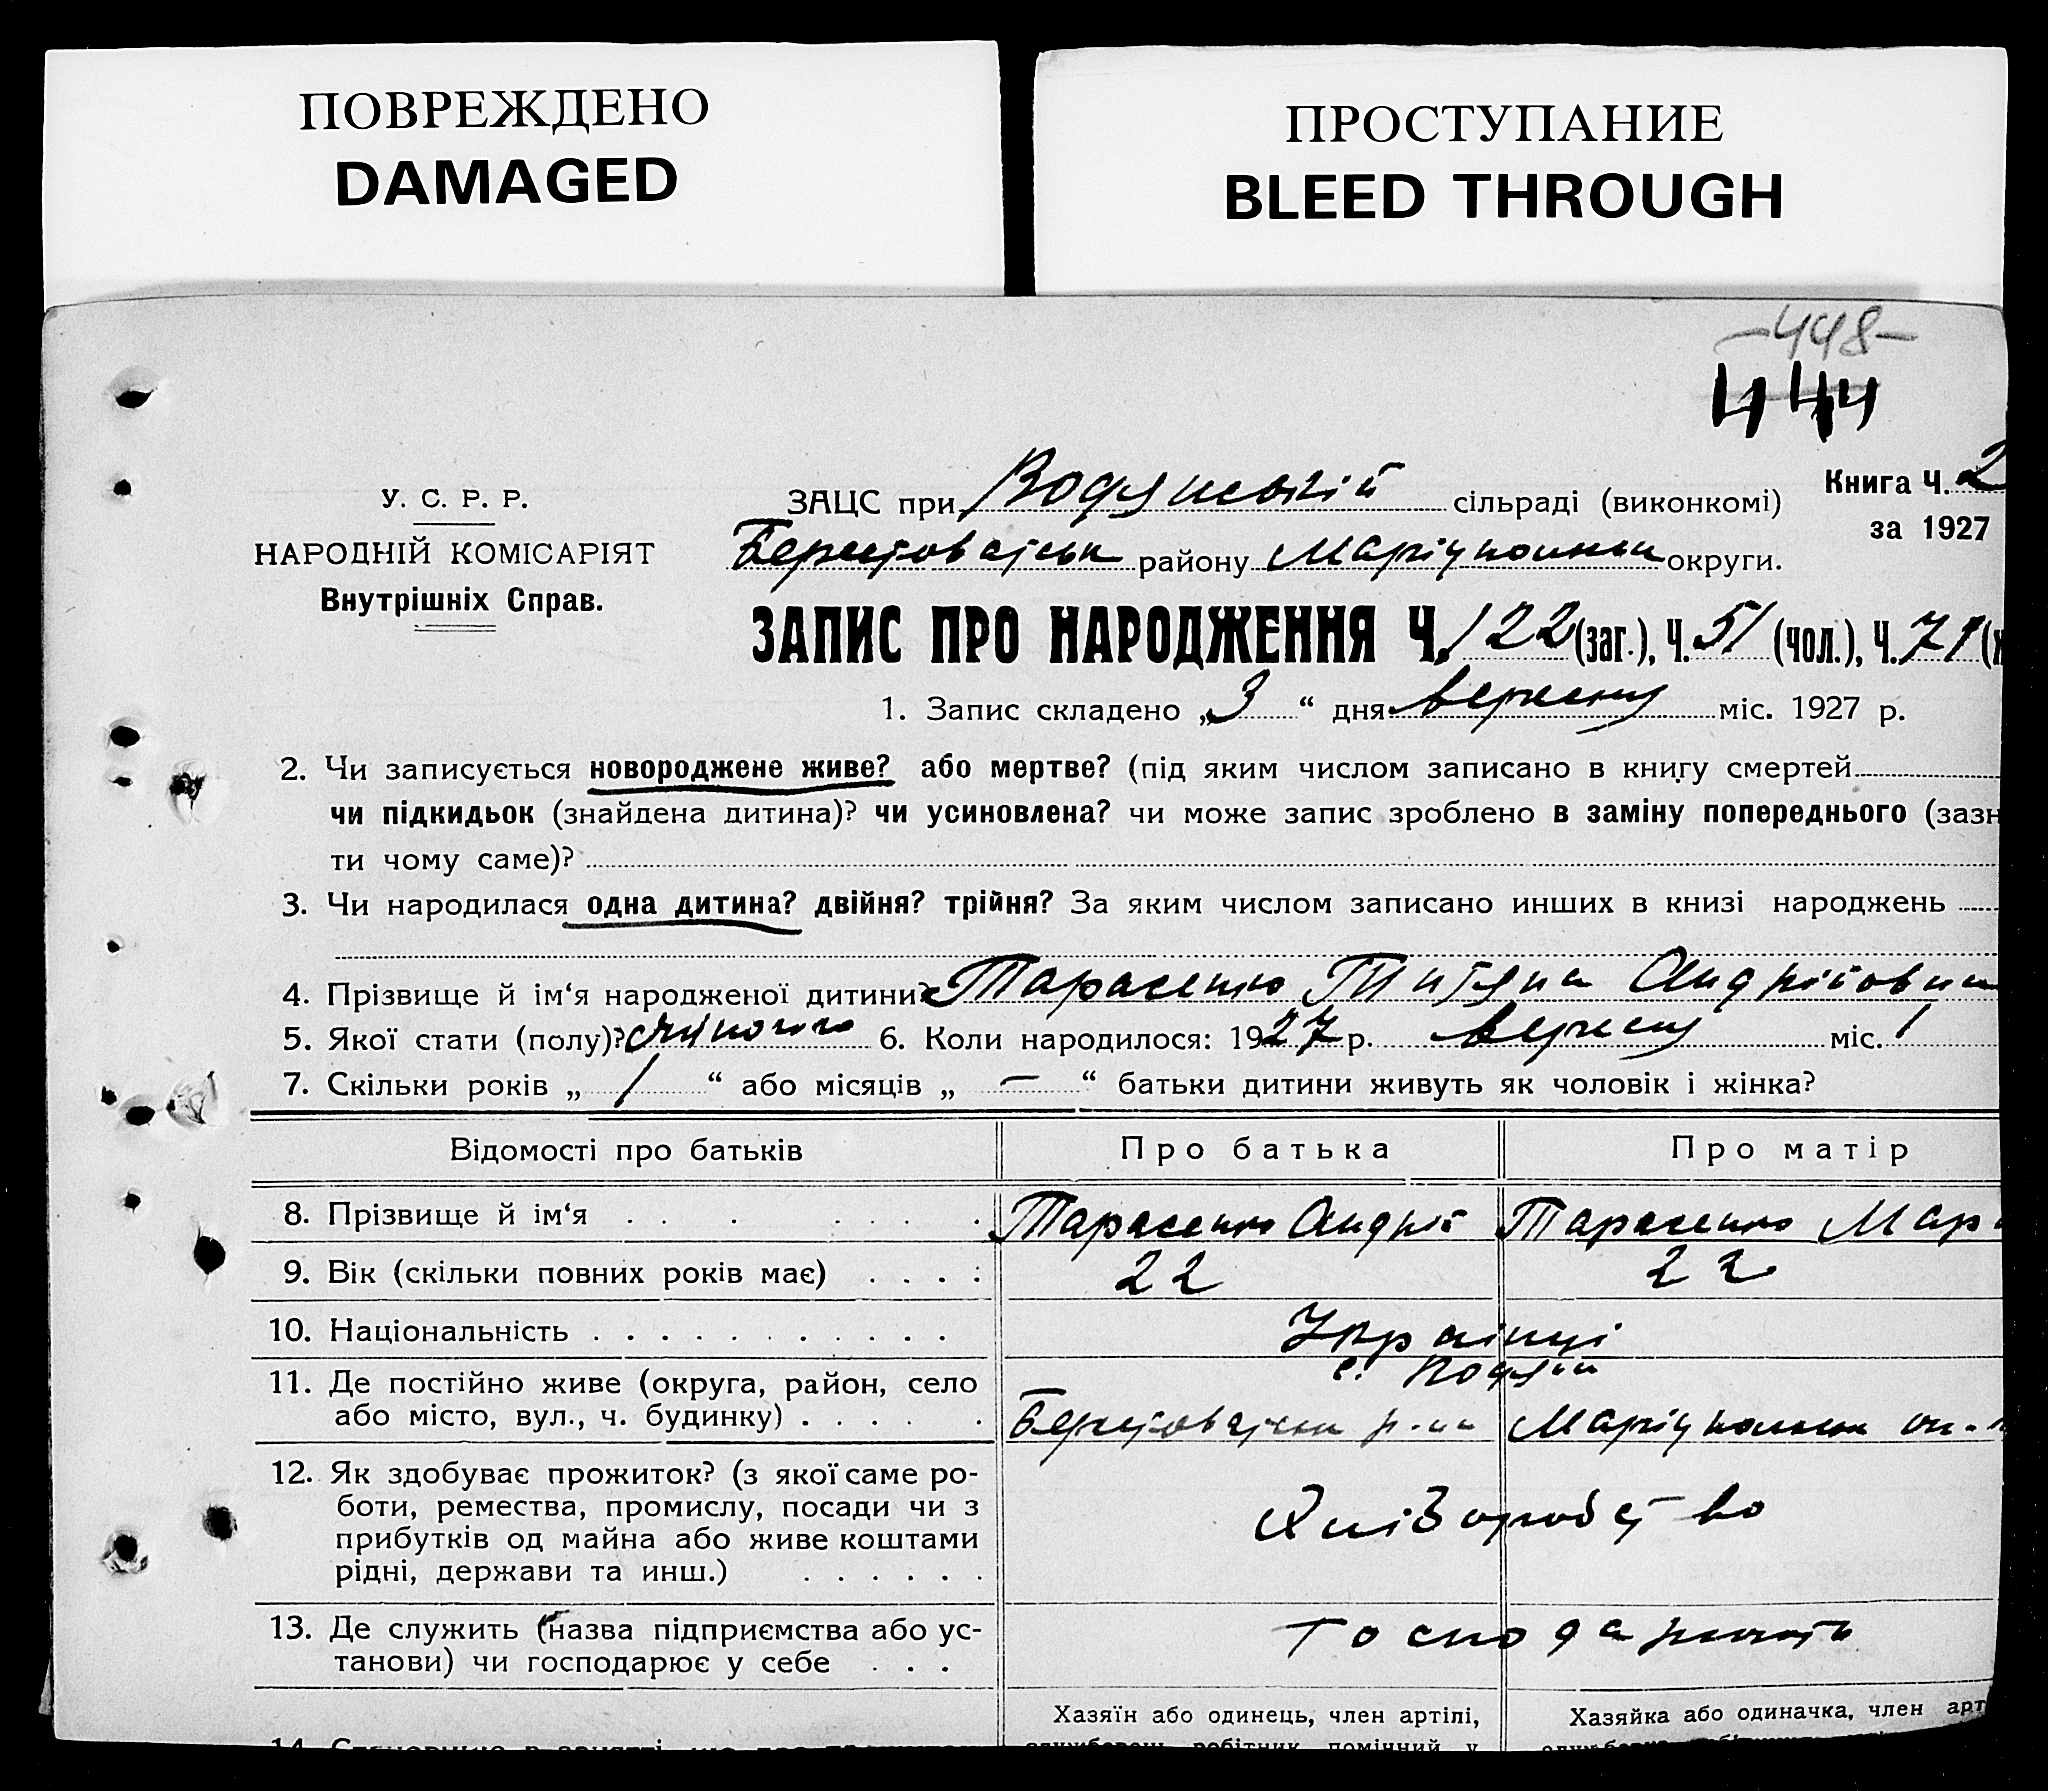 ПОВРЕЖДЕНО
DAMAGED
ПРОСТУПАНИЕ
BLEED THROUGH
-448-
444
У. С. Р. Р.
НАРОДНІЙ КОМІСАРІЯТ
Внутрішніх Справ.
ЗАЦС при Водянській сільраді (виконкомі)
Книга Ч. 2
за 1927
Берестоватськ району Маріупольськ округи.
ЗАПИС ПРО НАРОДЖЕННЯ Ч. 122 (заг.), Ч. 51 (чол.), Ч. 71 (ж
1. Запис складено „3“ дня вересня міс. 1927 р.
2. Чи записується новороджене живе? або мертве? (під яким числом записано в книгу смертей
чи підкидьок (знайдена дитина)? чи усиновлена? чи може запис зроблено в заміну попереднього (зазн
ти чому саме)?
3. Чи народилася одна дитина? двійня? трійня? За яким числом записано инших в книзі народжень
4. Прізвище й ім‘я народженої дитини? Тарасенко Титяна Андріёвна
5. Якої стати (полу)? жіночого 6. Коли народилося: 1927 р. вересня міс. 1
7. Скільки років „ 1 “ або місяців „ — “ батьки дитини живуть як чоловік і жінка?
Відомості про батьків Про батька Про матір
8. Прізвище й ім‘я Тарасенко Андрій Тарасенко Мар
9. Вік (скільки повних років має) 22 22
10. Національність Українці
с. Водяній
11. Де постійно живе (округа, район, село
або місто, вул., ч. будинку) Берестоватськ р-на Маріупольськ ок-
12. Як здобуває прожиток? (з якої саме ро-
боти, ремества, промислу, посади чи з
прибутків од майна або живе коштами
рідні, держави та инш.)
Хліборобство
13. Де служить (назва підприємства або ус-
танови) чи господарює у себе
Господарюють
Хазяїн або одинець, член артілі,
Хазяйка або одиначка, член арт